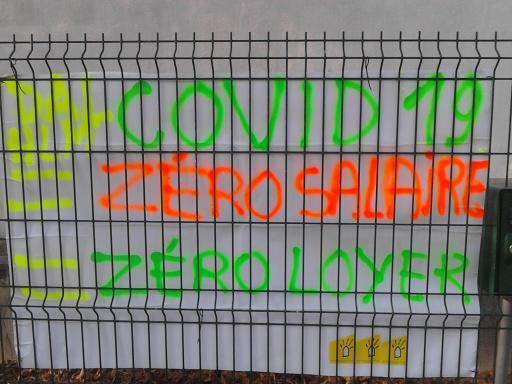 COVID 19
= ZÉRO SALAIRE
- ZÉRO LOYER